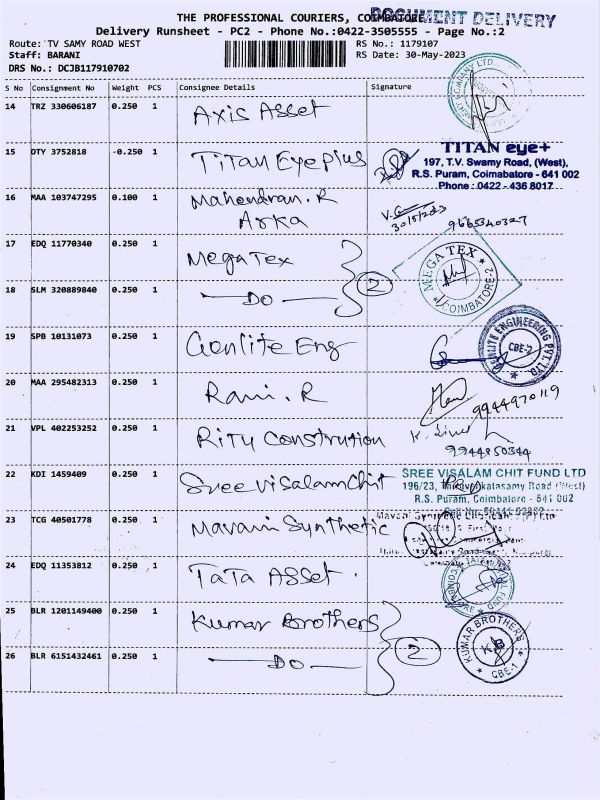 THE PROFESSIONAL COURIERS, COIMBATORE
DOCUMENT DELIVERY
Delivery Runsheet - PC2 - Phone No.:0422-3505555 - Page No.:2
Route: TV SAMY ROAD WEST
RS No.: 1179107
Staff: BARANI
RS Date: 30-May-2023
DRS No.: DCJB117910702
S No Consignment No Weight PCS Consignee Details Signature
14 TRZ 330606187 0.250 1 Axis Asset
15 DTY 3752818 -0.250 1 Titan Eyeplus
TITAN eye+
197, T.V. Swamy Road, (West),
R.S. Puram, Coimbatore - 641 002
Phone : 0422 - 436 8017
16 MAA 103747295 0.100 1 Mahendran. R
Arka
30/5/2023
9665340327
17 EDQ 11770340 0.250 1 Mega Tex
MEGA TEX
COIMBATORE-2
18 SLM 320889840 0.250 1 — DO —
2
19 SPB 10131073 0.250 1 Genlite Eng
GENLITE ENGINEERING PVT. LTD.
CBE-2
20 MAA 295482313 0.250 1 Rani. R
9944970119
21 VPL 402253252 0.250 1 Ritu Constrution
9944850344
22 KDI 1459409 0.250 1 Sree Visalam Chit
SREE VISALAM CHIT FUND LTD
196/23, Thiruvenkatasamy Road (West)
R.S. Puram, Coimbatore - 641 002
23 TCG 40501778 0.250 1 Mavani Synthetic
24 EDQ 11353812 0.250 1 Tata Asset.
25 BLR 1201149400 0.250 1 Kumar Brothers
KUMAR BROTHERS
KB
CBE-1
26 BLR 6151432461 0.250 1 — DO —
2